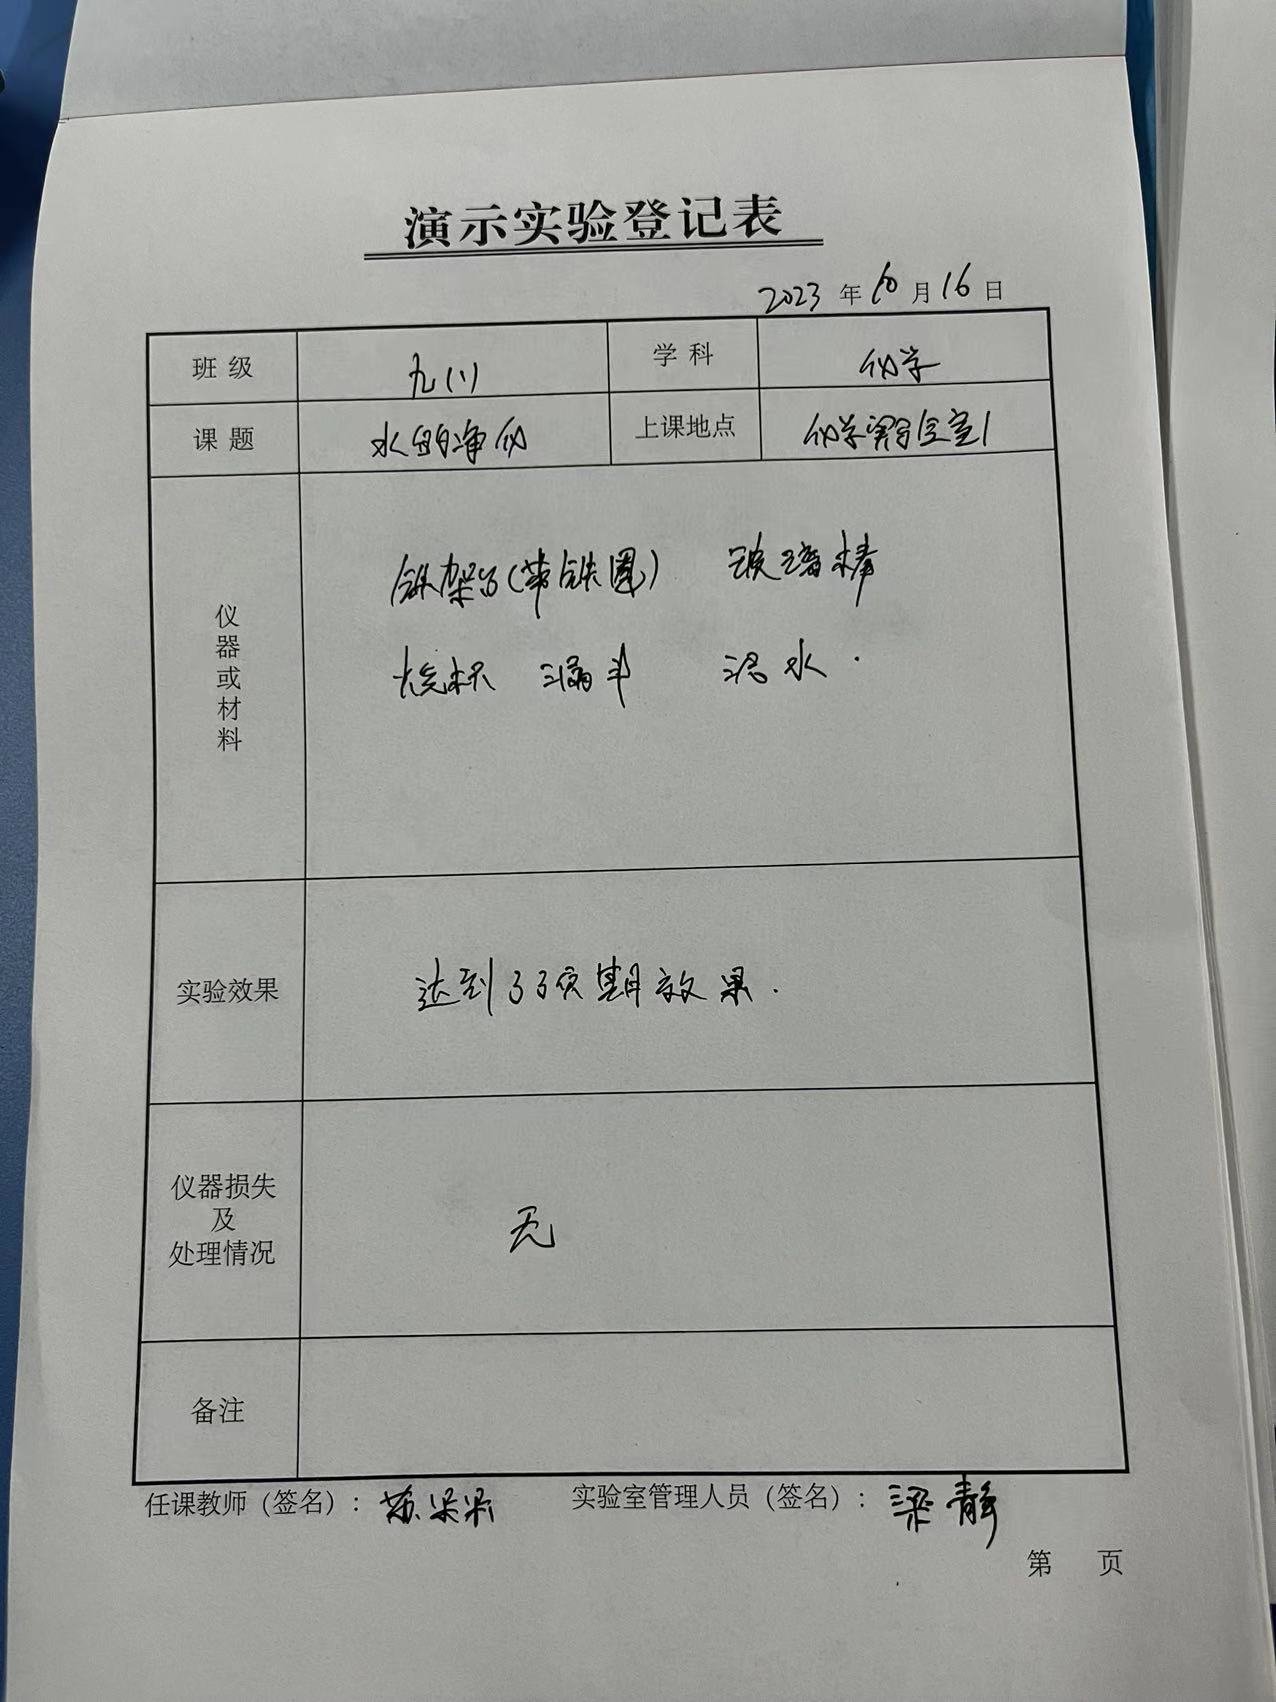 演示实验登记表
2023 年 10 月 16 日
班级 九(1) 学科 化学
课题 水的净化 上课地点 化学实验室1
仪器或材料
铁架台(带铁圈) 玻璃棒
烧杯 漏斗 浑水.
实验效果 达到了预期效果.
仪器损失及处理情况 无
备注
任课教师（签名）: 苏果果 实验室管理人员（签名）: 梁静
第 页